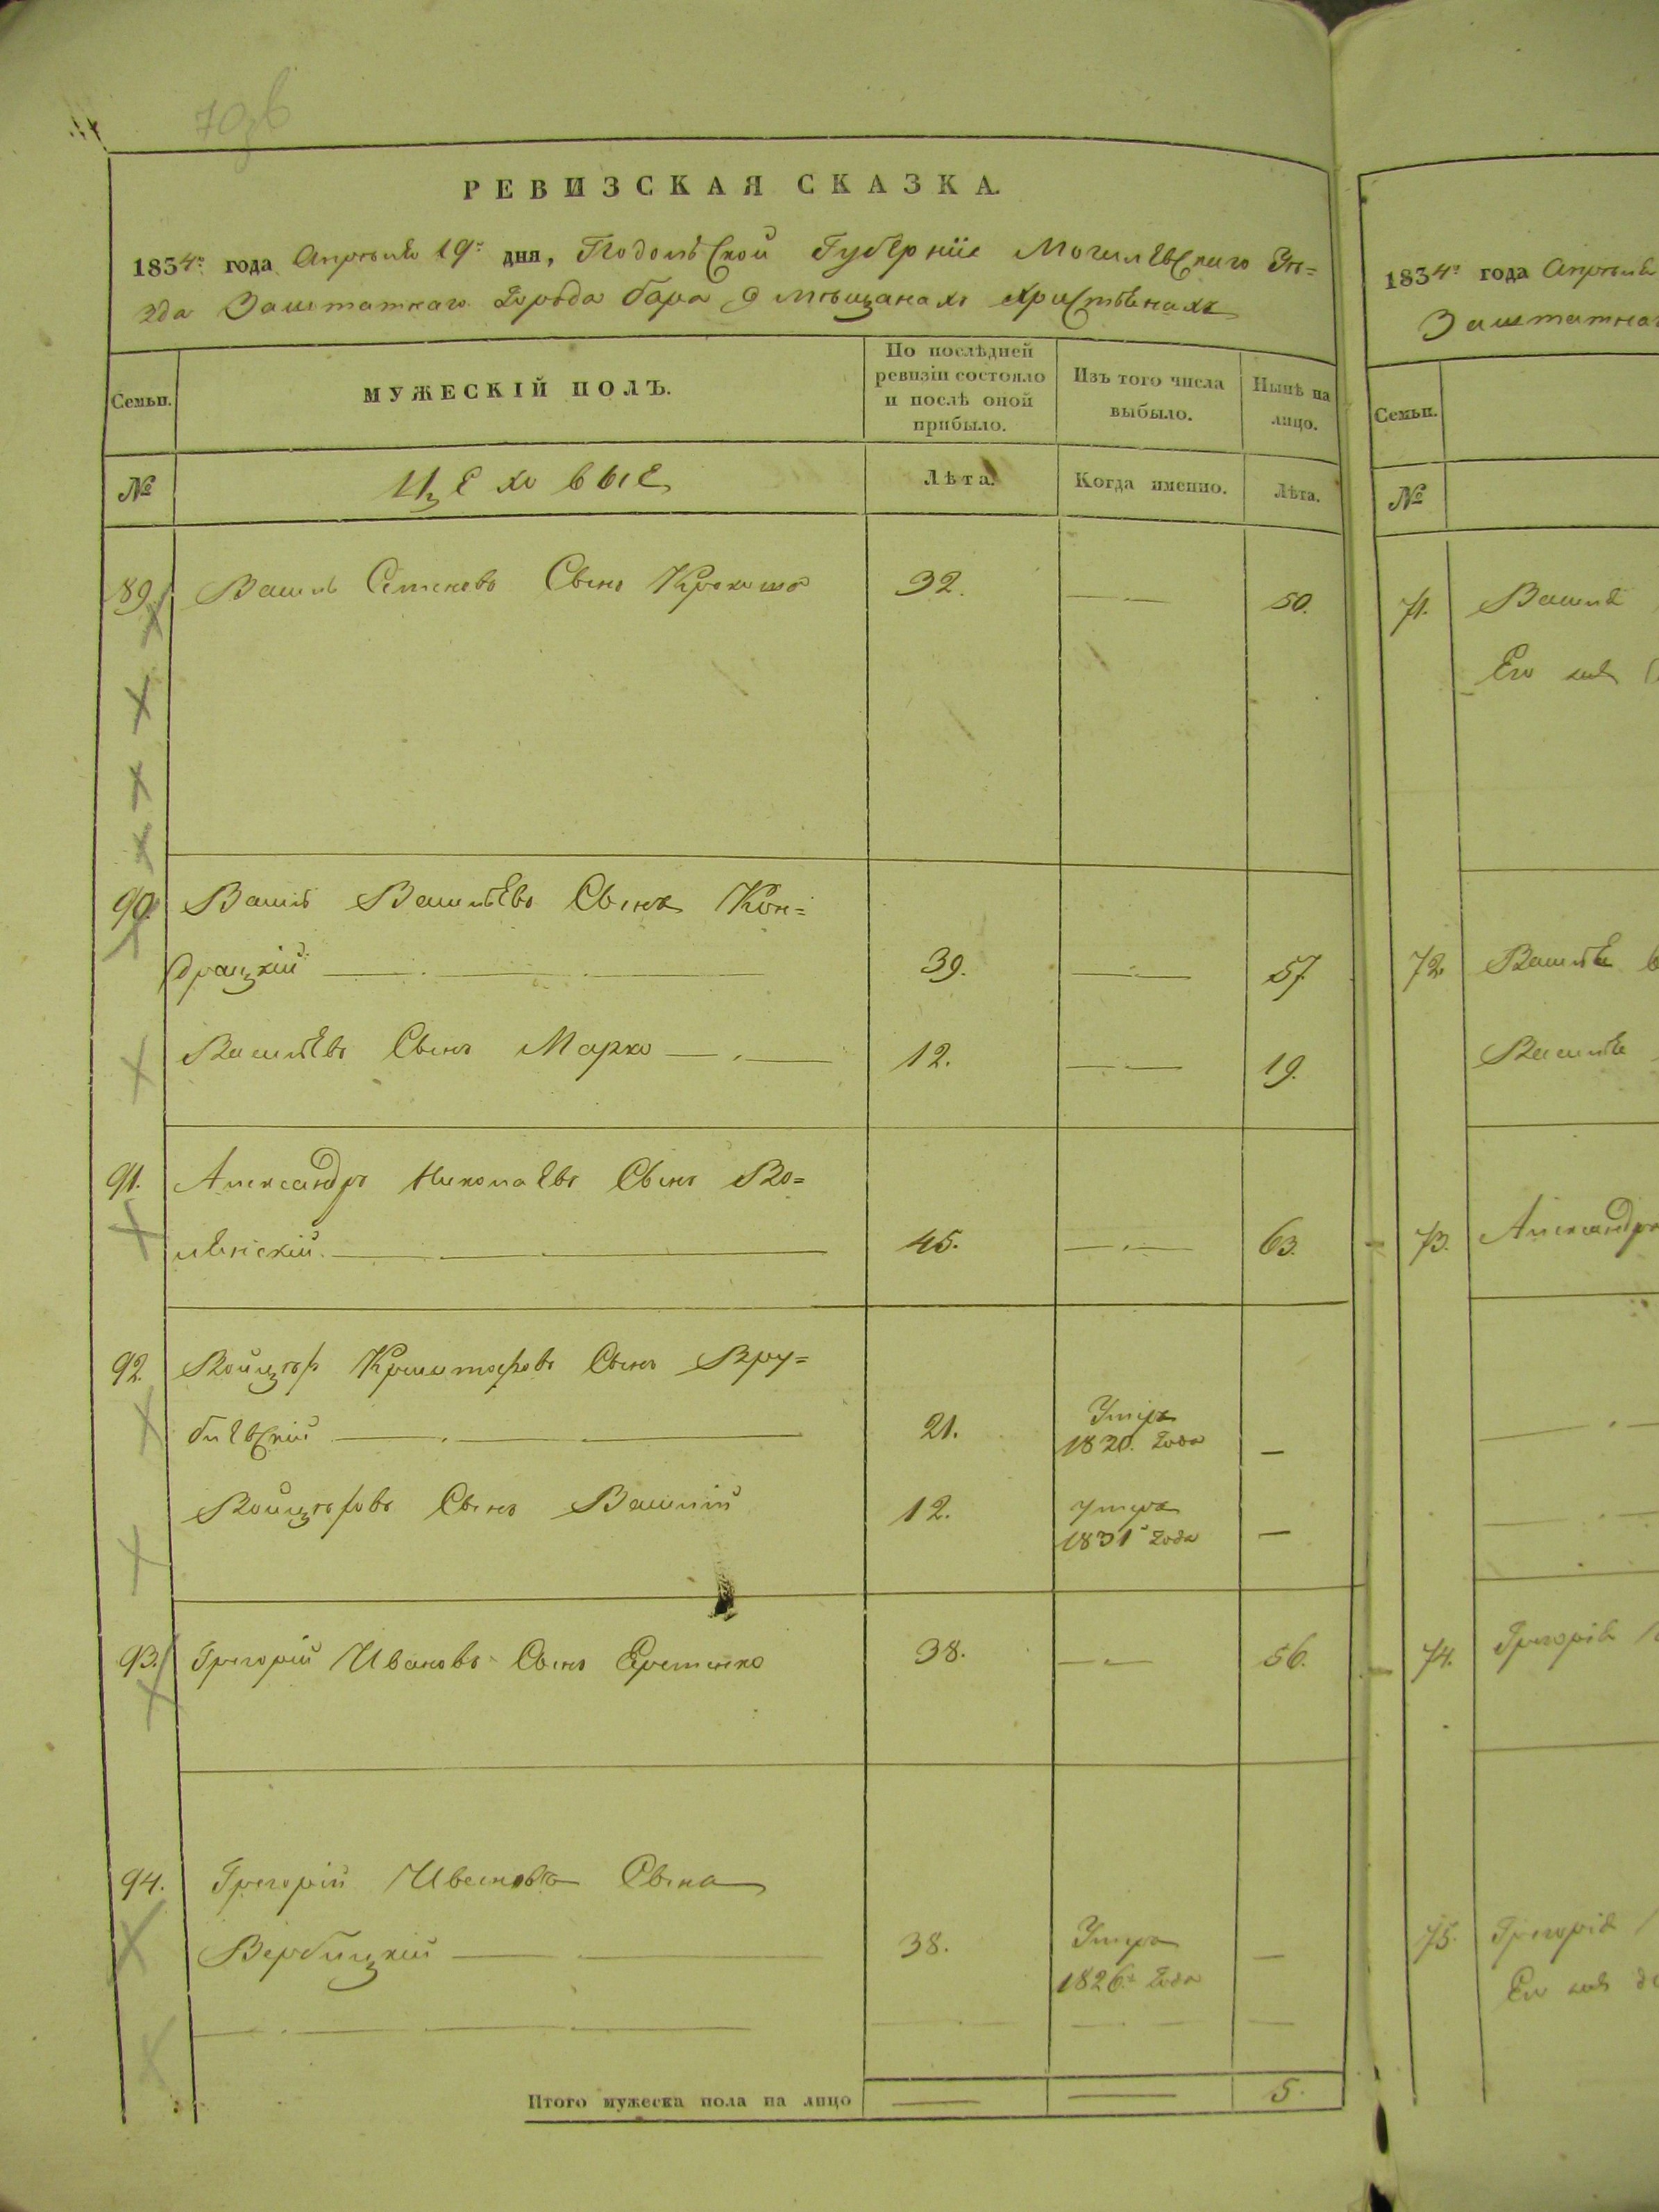 703б
РЕВИЗСКАЯ СКАЗКА.
1834го года Апрѣля 19го дня, Подольской Губерніи Могилевскаго Уѣ=
зда Заштатнаго Города Бара о мѣщанахъ христьянахъ
Семьи.
МУЖЕСКІЙ ПОЛЪ.
По послѣдней ревизіи состояло и послѣ оной прибыло.
Изъ того числа выбыло.
Нынѣ на лицо.
№
Цеховые
Лѣта.
Когда именно.
Лѣта.
89. Василь Семеновъ Сынъ 32. 50.
90. Василь Васильевъ Сынъ Кон=
драцкій 39. 57
Васильевъ Сынъ Марко 12. 19.
91. Александръ Николаевъ Сынъ Во=
ленскій 45. 63.
92. Войцѣх Криштофовъ Сынъ Вру=
блевскій 21. Умре 1820. года —
Войцѣховъ Сынъ Василій 12. умре 1831го года —
93. Григорій Ивановъ Сынъ Еременко 38. 56.
94. Григорій Ивановъ Сынъ
Вербицкій 38. Умре 1826го года —
Итого мужеска пола на лицо 5.
1834го года Апрѣля
Заштатнаг
Семьи.
№
71. Василя
Его
72. Василя
Василя
73. Александра
74. Григорія
75. Григорія
Его